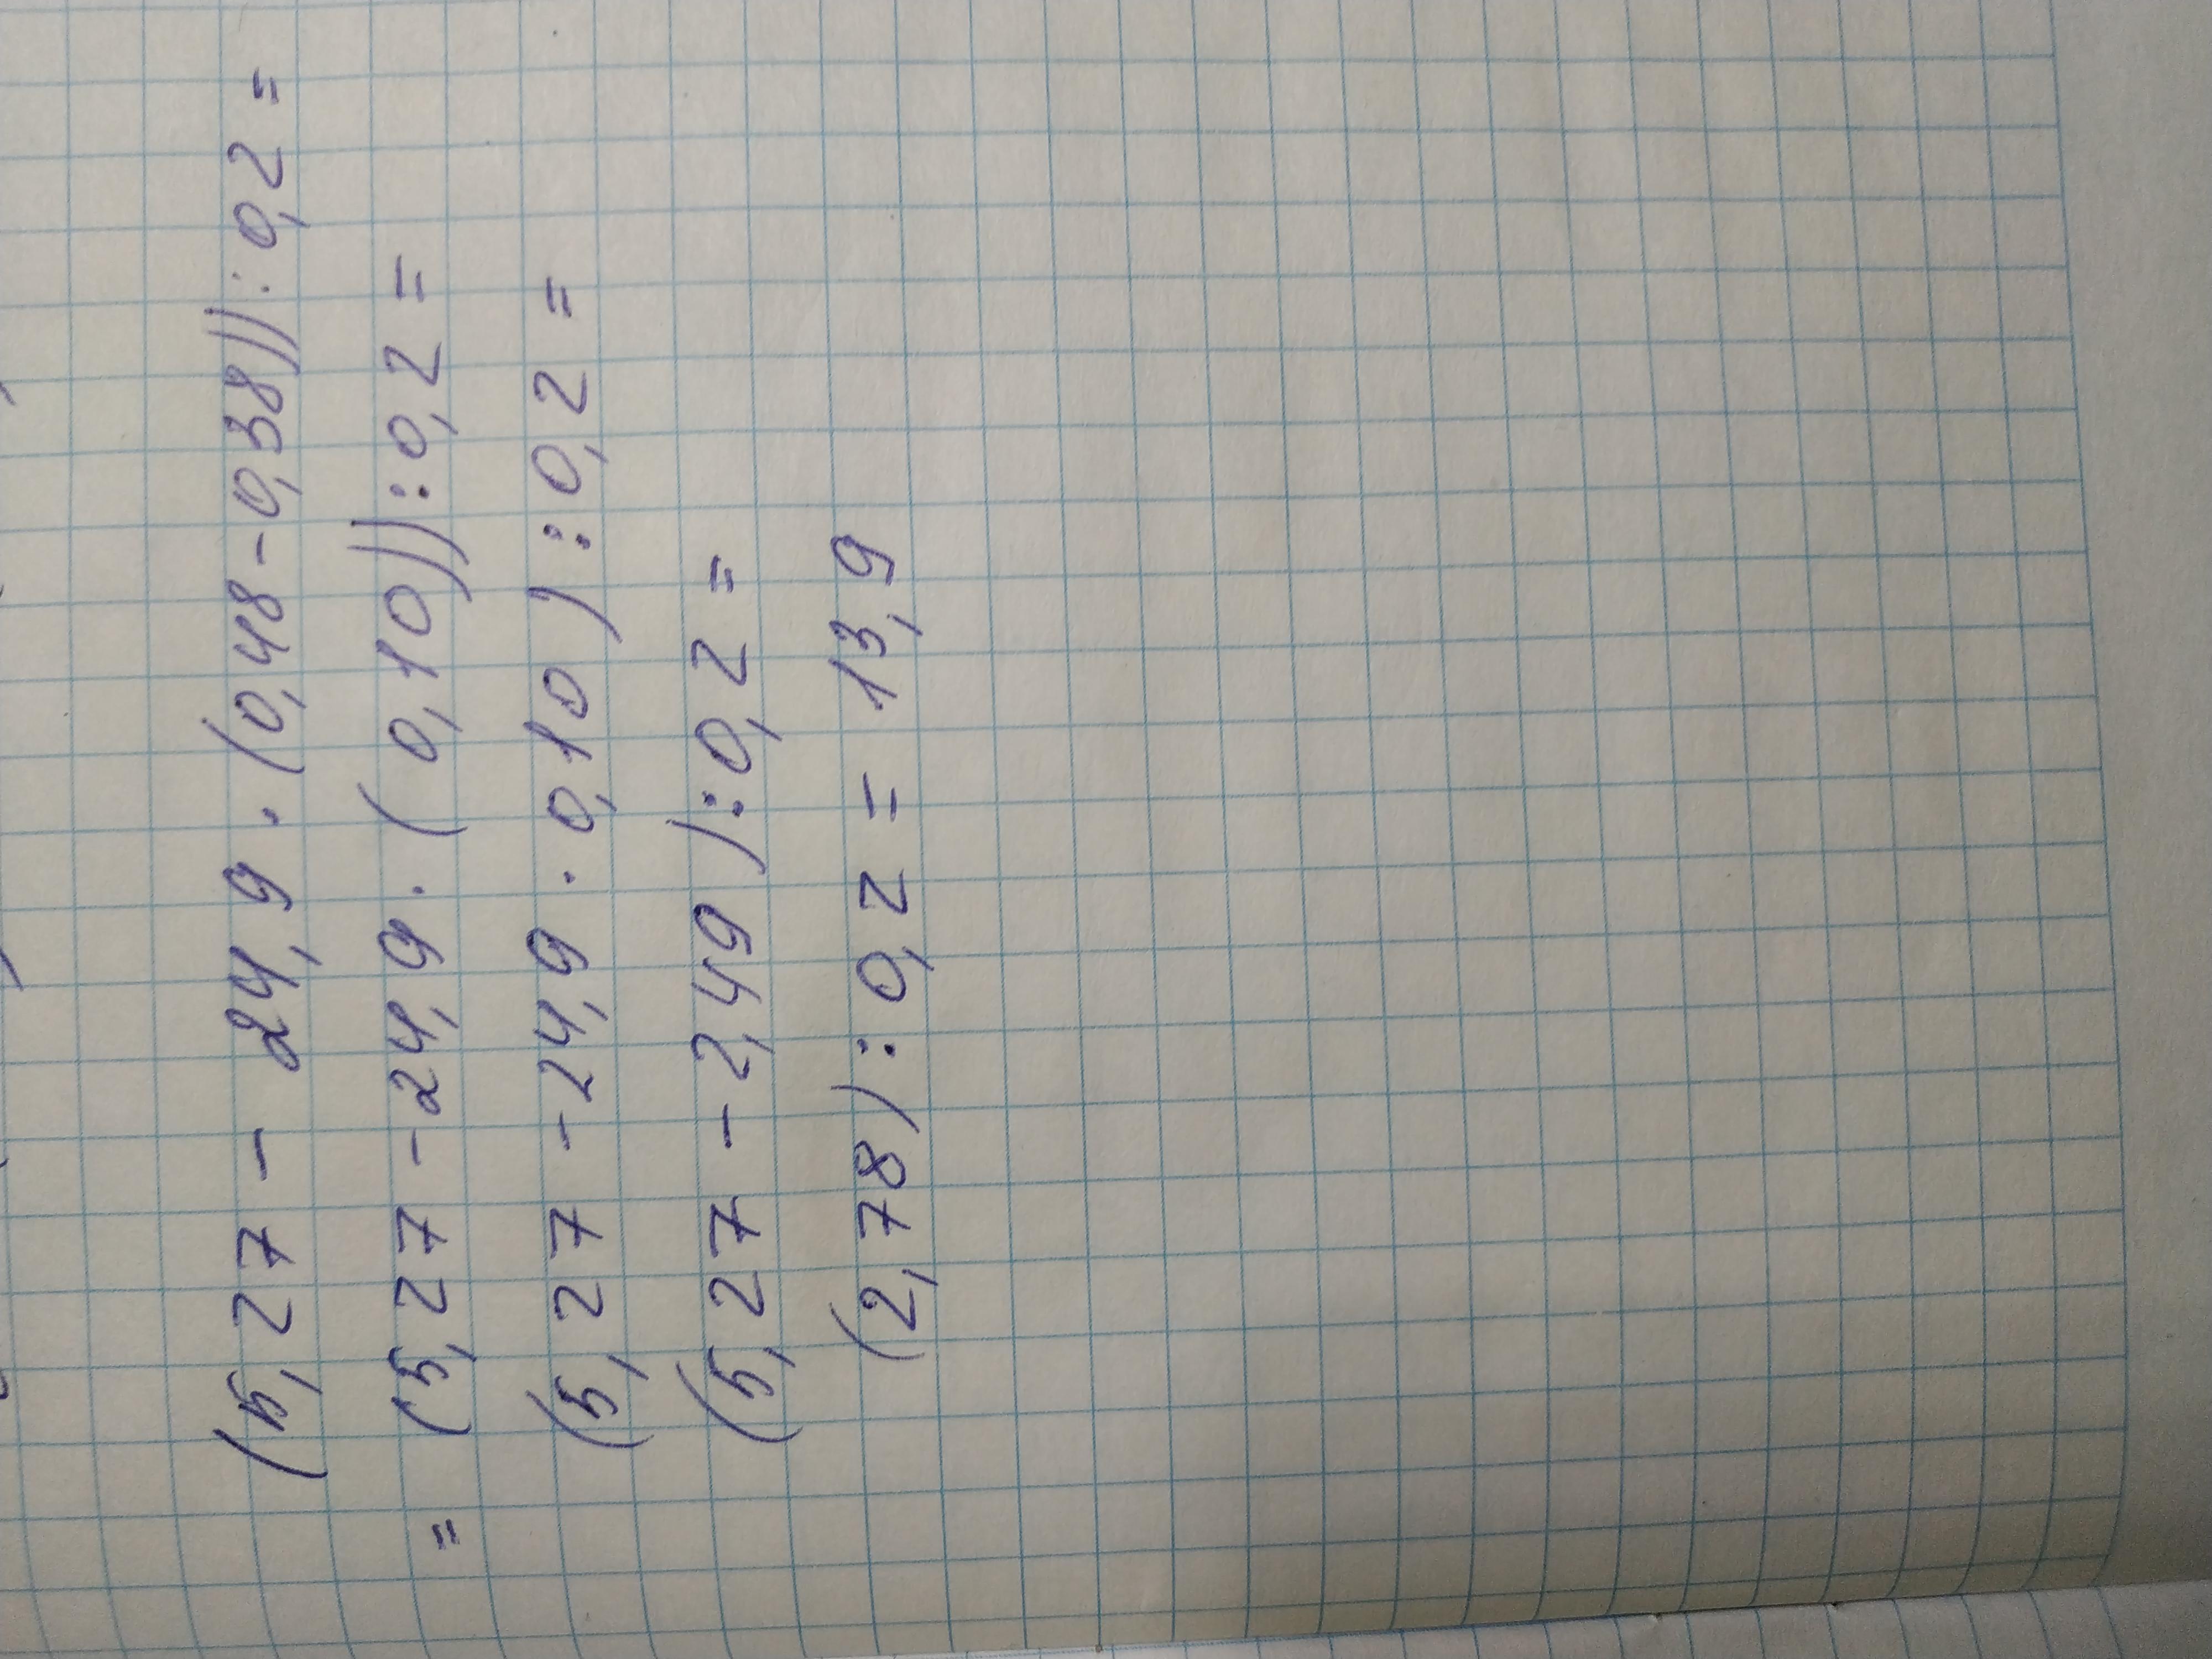 (5,27 - 24,9 · (0,48-0,38)):0,2 =
= (5,27 -24,9 · (0,10)):0,2 =
(5,27 -24,9 · 0,10 ):0,2 =
(5,27 - 2,49 ):0,2 =
(2,78) : 0,2 = 13,9